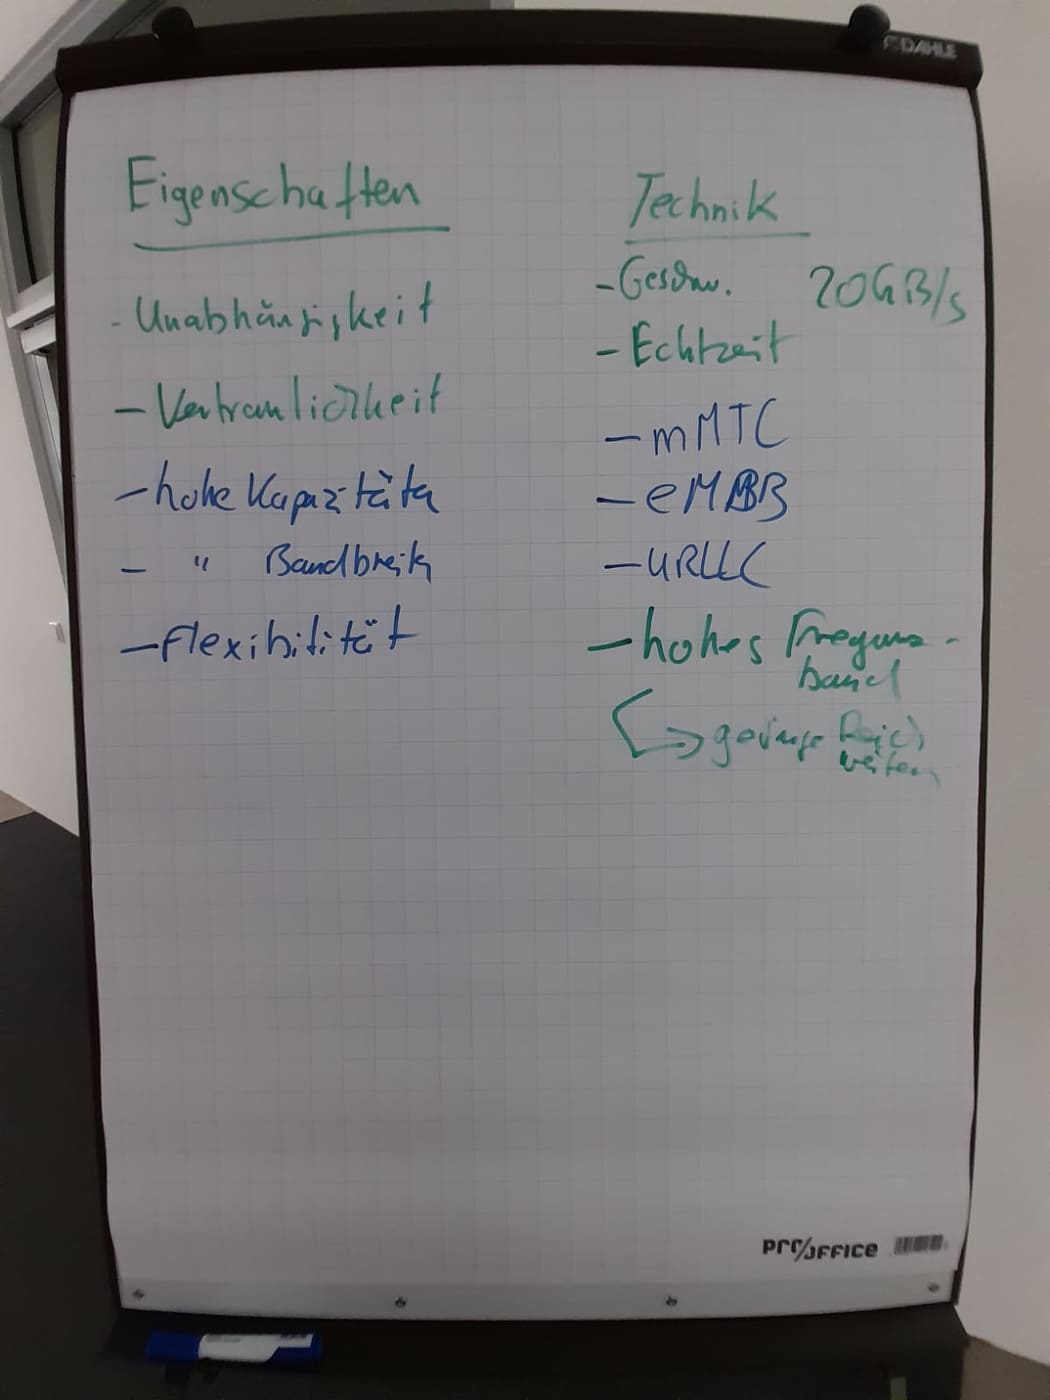 DAHLE
Eigenschaften
- Unabhängigkeit
- Vertraulichkeit
- hohe Kapazitäten
- " Bandbreite
- Flexibilität
Technik
- Geschw. 20GB/s
- Echtzeit
- mMTC
- eMBB
- URLLC
- hohes Frequenz-
band
geringe Reich
weiten
PRO/OFFICE